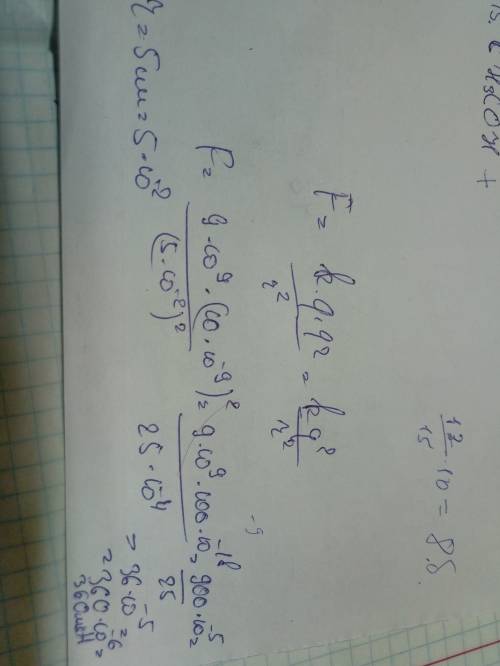 CH₃COH +
12/15 · 10 = 8.8
F = k·q·q2/r² = kq²/r²
r = 5 см = 5·10⁻²
F = 9·10⁹·(10·10⁻⁹)²/(5·10⁻²)² = 9·10⁹·100·10⁻¹⁸/25·10⁻⁴ = 900·10⁻⁵/25 =
-9
= 36·10⁻⁵ =
= 360·10⁻⁶ =
360мкН